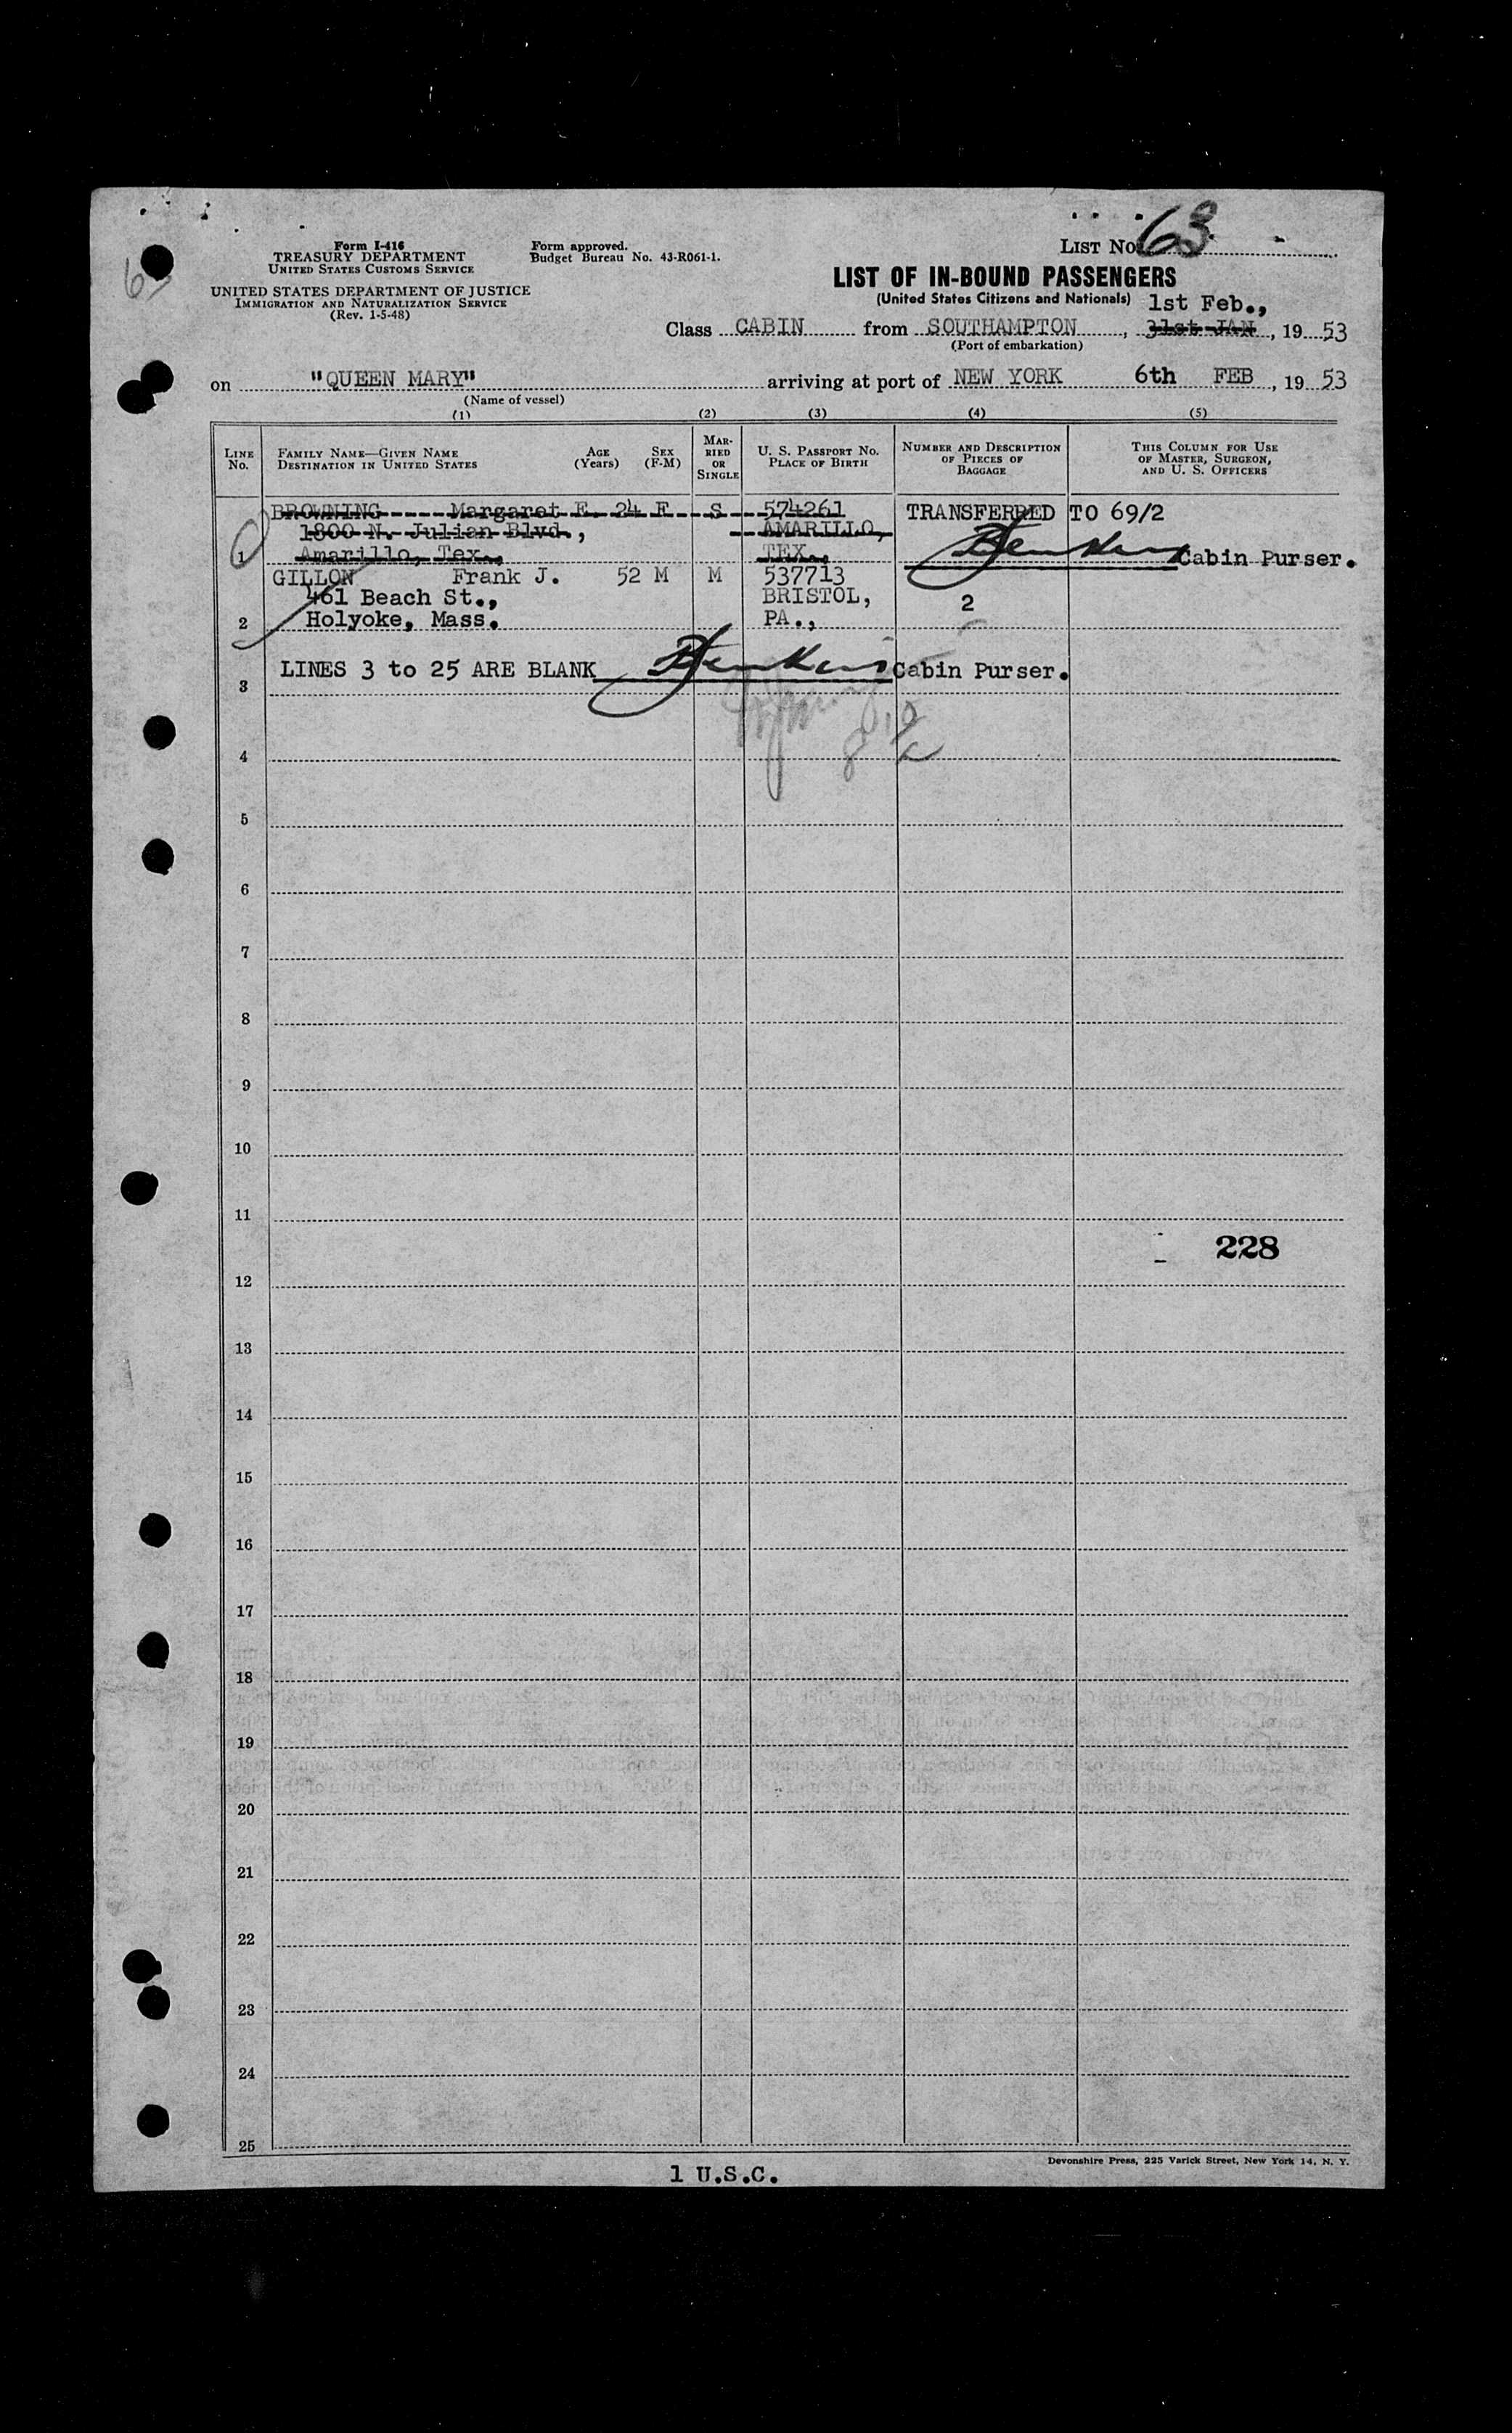 Form I-416
TREASURY DEPARTMENT
UNITED STATES CUSTOMS SERVICE
UNITED STATES DEPARTMENT OF JUSTICE
IMMIGRATION AND NATURALIZATION SERVICE
(Rev. 1-5-48)
Form approved.
Budget Bureau No. 43-R061-1.
LIST NO. 63
LIST OF IN-BOUND PASSENGERS
(United States Citizens and Nationals) 1st Feb.,
Class CABIN from SOUTHAMPTON, 31st JAN, 19 53
(Port of embarkation)
on "QUEEN MARY" arriving at port of NEW YORK 6th FEB, 19 53
(Name of vessel)
(1) (2) (3) (4) (5)
LINE NO.
FAMILY NAME—GIVEN NAME AGE SEX
DESTINATION IN UNITED STATES (Years) (F-M)
MARRIED OR SINGLE
U. S. PASSPORT NO.
PLACE OF BIRTH
NUMBER AND DESCRIPTION OF PIECES OF BAGGAGE
THIS COLUMN FOR USE OF MASTER, SURGEON, AND U. S. OFFICERS
BROWNING Margaret E. 24 F S 574261 TRANSFERRED TO 69/2
1800 N. Julian Blvd., AMARILLO,
1 Amarillo, Tex., TEX., Cabin Purser.
GILLON Frank J. 52 M M 537713
461 Beach St., BRISTOL, 2
2 Holyoke, Mass. PA.,
LINES 3 to 25 ARE BLANK Cabin Purser.
3
4
5
6
7
8
9
10
11
228
12
13
14
15
16
17
18
19
20
21
22
23
24
25
Devonshire Press, 225 Varick Street, New York 14, N. Y.
1 U.S.C.